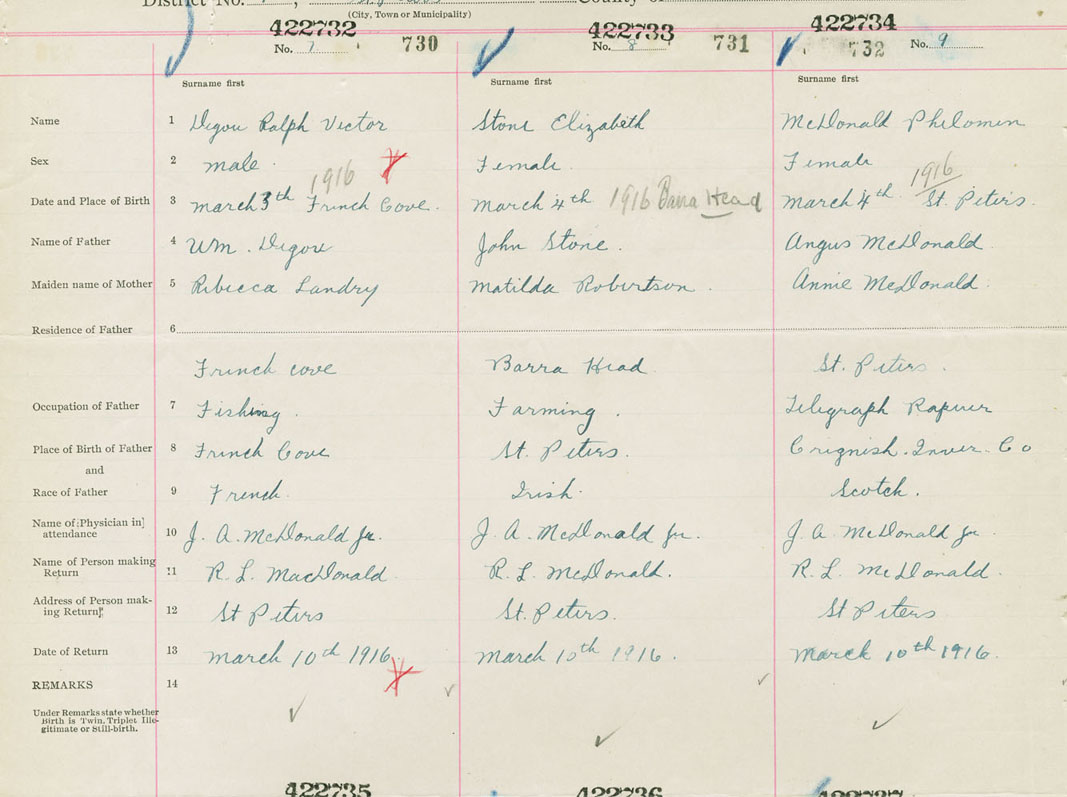 District No. County of
(City, Town or Municipality)
422732 422733 422734
No. 7 730 No. 8 731 732 No. 9
Surname first Surname first Surname first
Name 1 Digou Ralph Victor Stone Elizabeth McDonald Philomen
Sex 2 male Female Female
1916 1916
Date and Place of Birth 3 March 3th French Cove. March 4th 1916 Barra Head March 4th St. Peters.
Name of Father 4 Wm. Digou John Stone. Angus McDonald
Maiden name of Mother 5 Ribecca Landry Matilda Robertson. Annie McDonald
Residence of Father 6
French cove Barra Head St. Peters.
Occupation of Father 7 Fishing. Farming. Telegraph
Place of Birth of Father 8 French Cove St. Peters. Crignish. Inver. Co
and
Race of Father 9 French. Irish. Scotch.
Name of Physician in]
attendance 10 J. A. McDonald Jr. J. A. McDonald Jr. J. A. McDonald Jr.
Name of Person making
Return 11 R. L. MacDonald R. L. McDonald. R. L. McDonald.
Address of Person mak-
ing Return 12 St Peters St. Peters. St Peters
Date of Return 13 March 10th 1916 March 10th 1916. March 10th 1916.
REMARKS 14
Under Remarks state whether
Birth is Twin, Triplet Ille-
gitimate or Still-birth.
422735 422736 422737